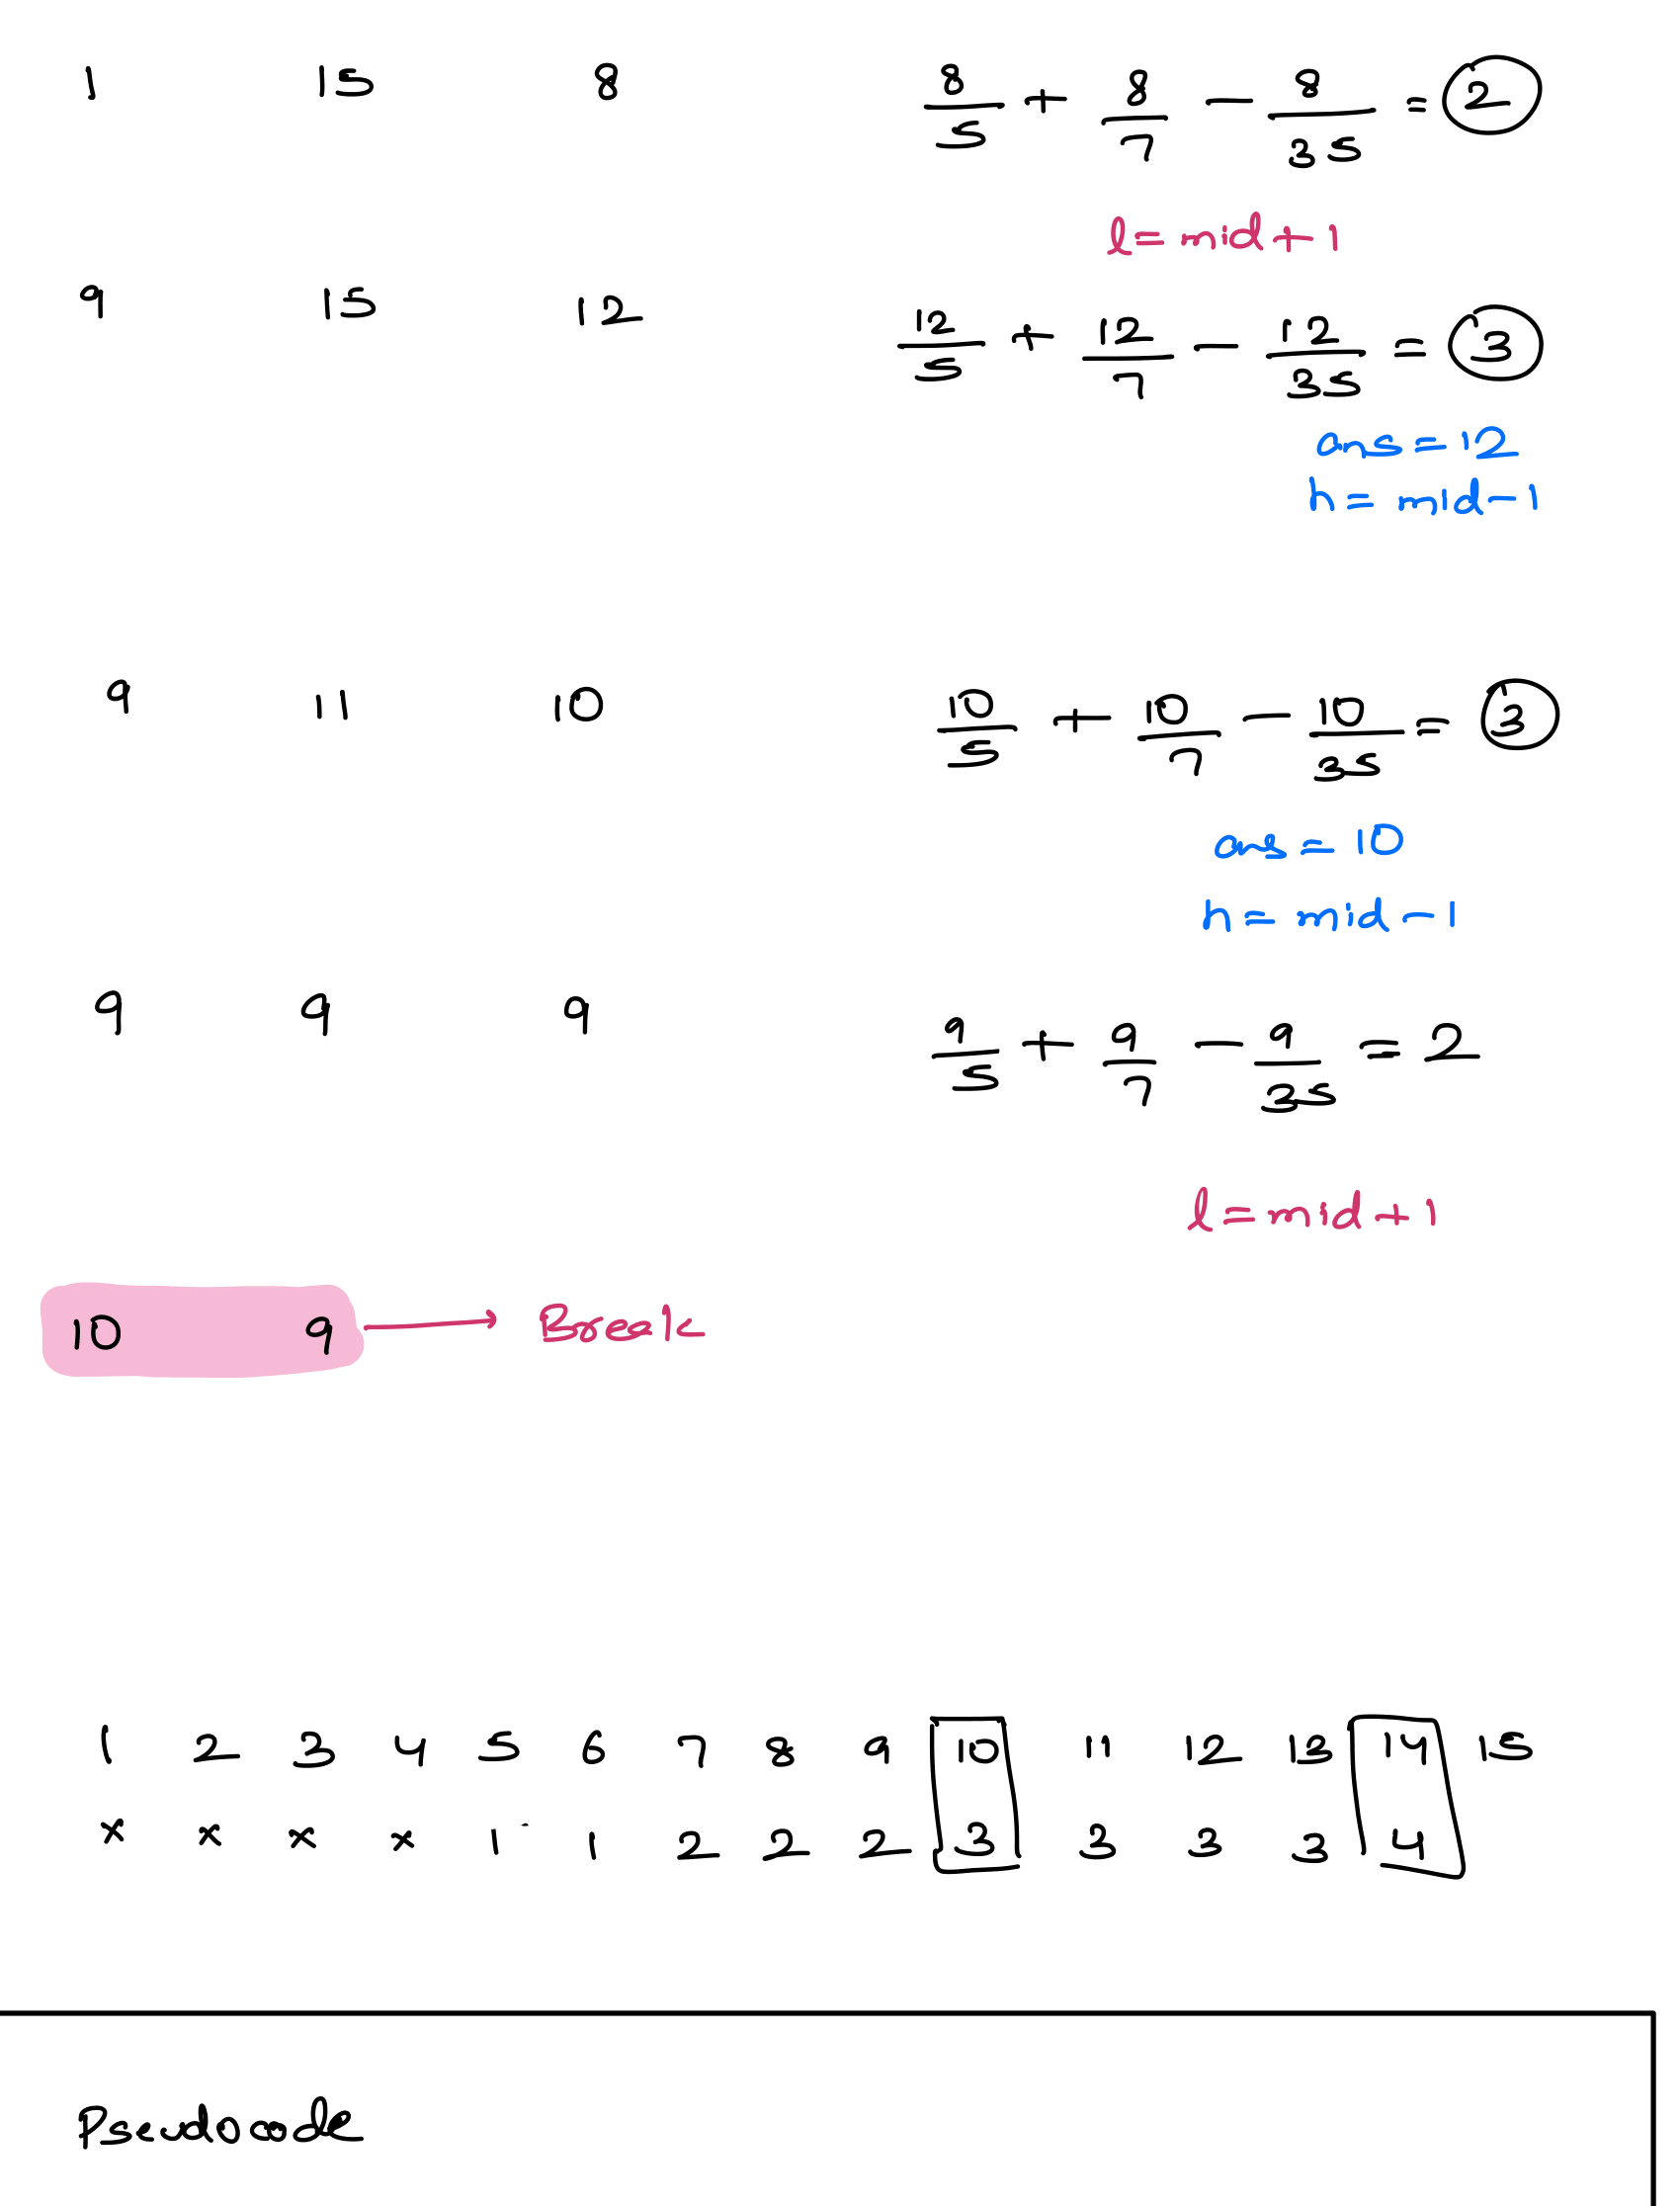 1 15 8 8/5 + 8/7 - 8/35 = 2
l = mid + 1
9 15 12 12/5 + 12/7 - 12/35 = 3
ans = 12
h = mid - 1
9 11 10 10/5 + 10/7 - 10/35 = 3
ans = 10
h = mid - 1
9 9 9 9/5 + 9/7 - 9/35 = 2
l = mid + 1
10 9 → Break
1 2 3 4 5 6 7 8 9 10 11 12 13 14 15
x x x x 1 1 2 2 2 3 3 3 3 4
Pseudocode